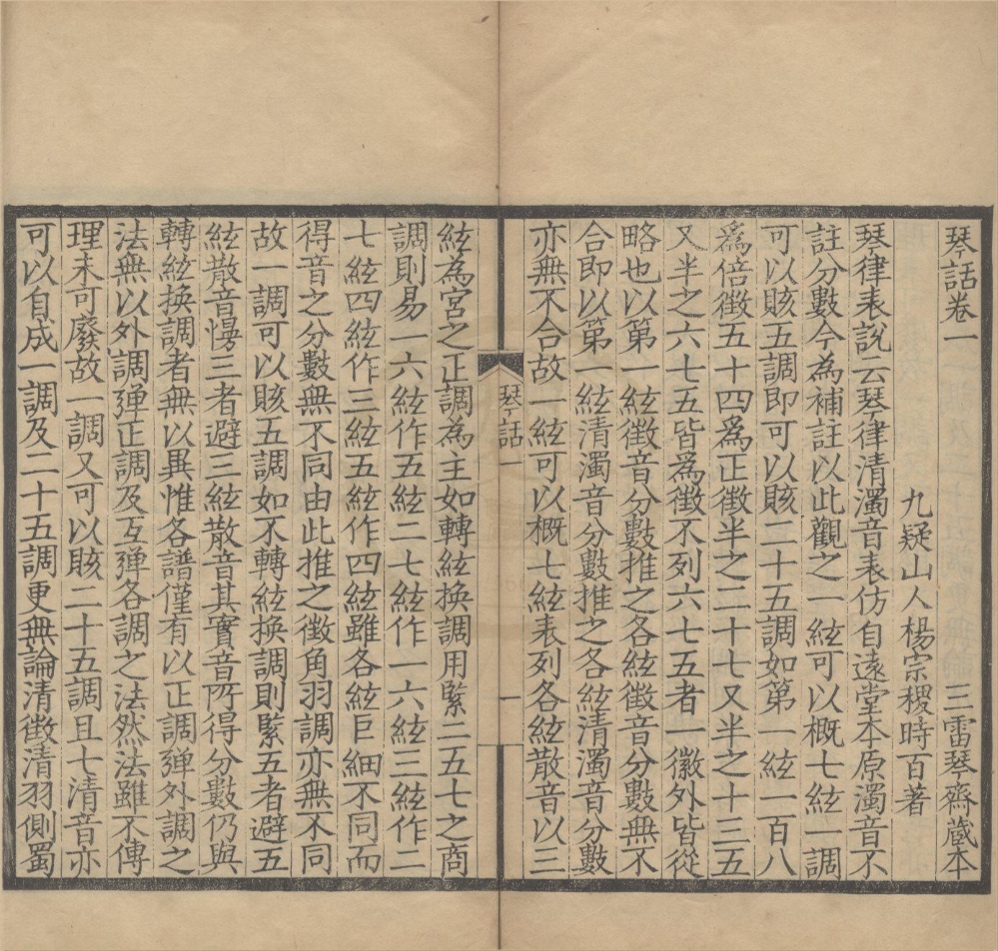 琴話卷一 三雷琴齋藏本
九疑山人楊宗稷時百著
琴律表說云琴律清濁音表仿自遠堂本原濁音不
註分數今為補註以此觀之一絃可以概七絃一調
可以賅五調即可以賅二十五調如第一絃一百八
爲倍徵五十四爲正徵半之二十七又半之十三五
又半之六七五皆爲徵不列六七五者一徽外皆從
略也以第一絃徵音分數推之各絃徵音分數無不
合即以第一絃清濁音分數推之各絃清濁音分數
亦無不合故一絃可以概七絃表列各絃散音以三
琴話一 一
絃為宮之正調為主如轉絃換調用緊二五七之商
調則易一六絃作五絃二七絃作一六絃三絃作二
七絃四絃作三絃五絃作四絃雖各絃巨細不同而
得音之分數無不同由此推之徵角羽調亦無不同
故一調可以賅五調如不轉絃換調則緊五者避五
絃散音慢三者避三絃散音其實音所得分數仍與
轉絃換調者無以異惟各譜僅有以正調彈外調之
法無以外調彈正調及互彈各調之法然法雖不傳
理未可廢故一調又可以賅二十五調且七清音亦
可以自成一調及二十五調更無論清徵清羽側蜀